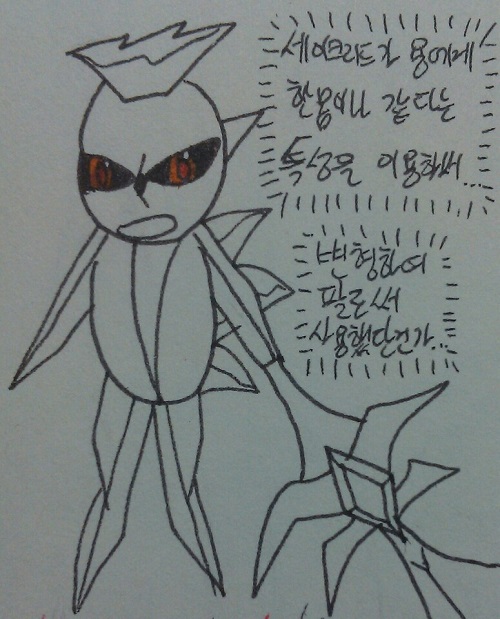 세이크리드가 용에게
한용이나 같다는
특성을 이용해서...
변형하여
팔로써
사용했단건가...